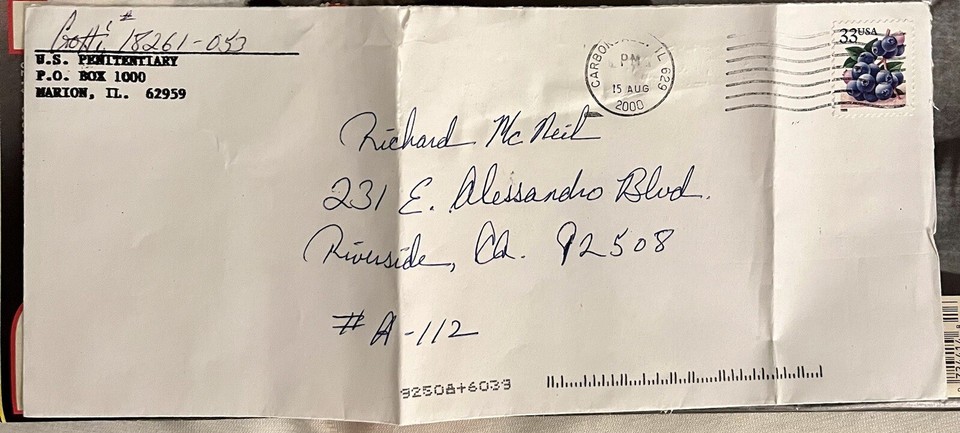 Gotti # 18261-053
U.S. PENITENTIARY
P.O. BOX 1000
MARION, IL. 62959
CARBOND IL 629
PM
15 AUG
2000
33USA
Richard McNeil
231 E. Alessandro Blvd.
Riverside, Ca. 92508
# A-112
92508+6039